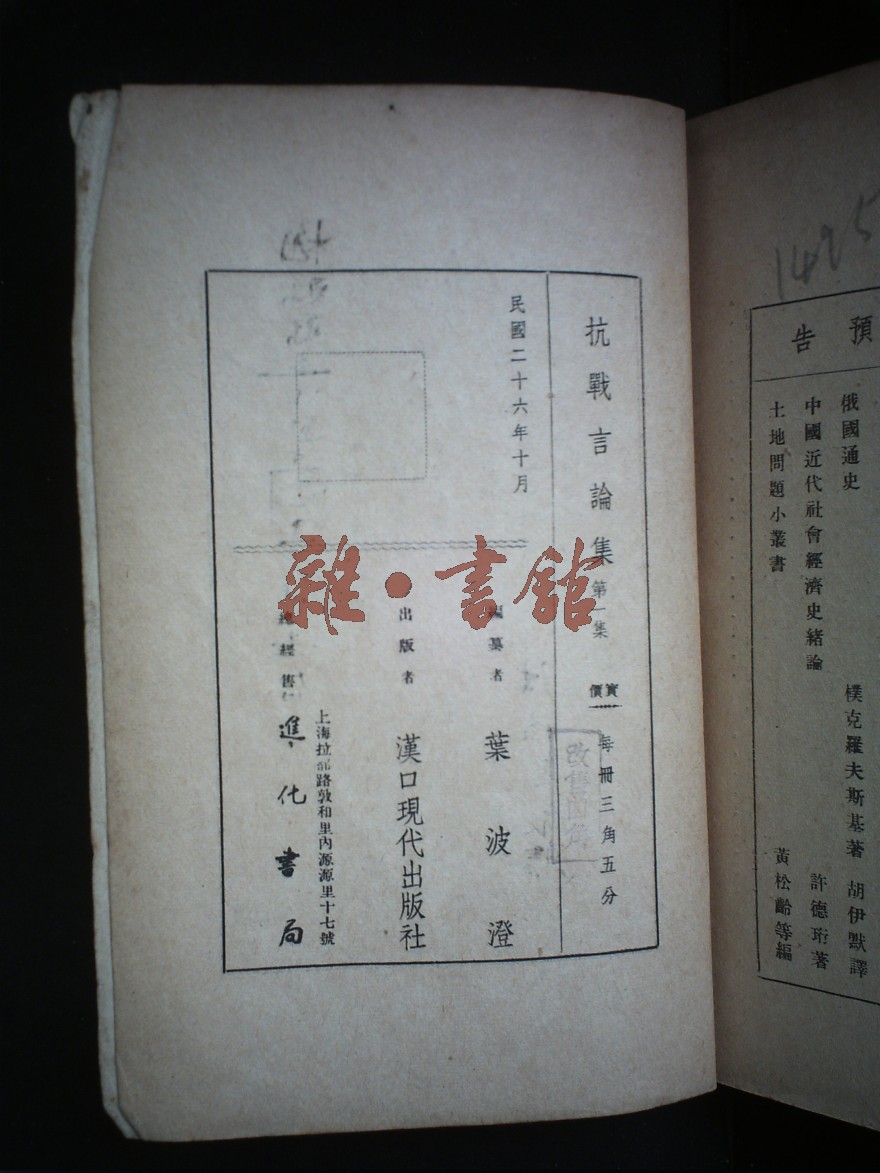 1495
預告
俄國通史 樸克羅夫斯基著 胡伊默譯
中國近代社會經濟史緒論 許德珩著
土地問題小叢書 黃松齡等編
抗戰言論集 第一集
實價 每冊三角五分
改售
民國二十六年十月
編纂者 葉波澄
出版者 漢口現代出版社
上海拉 路敦和里內源源里十七號
總經售 進化書局
雜·書館